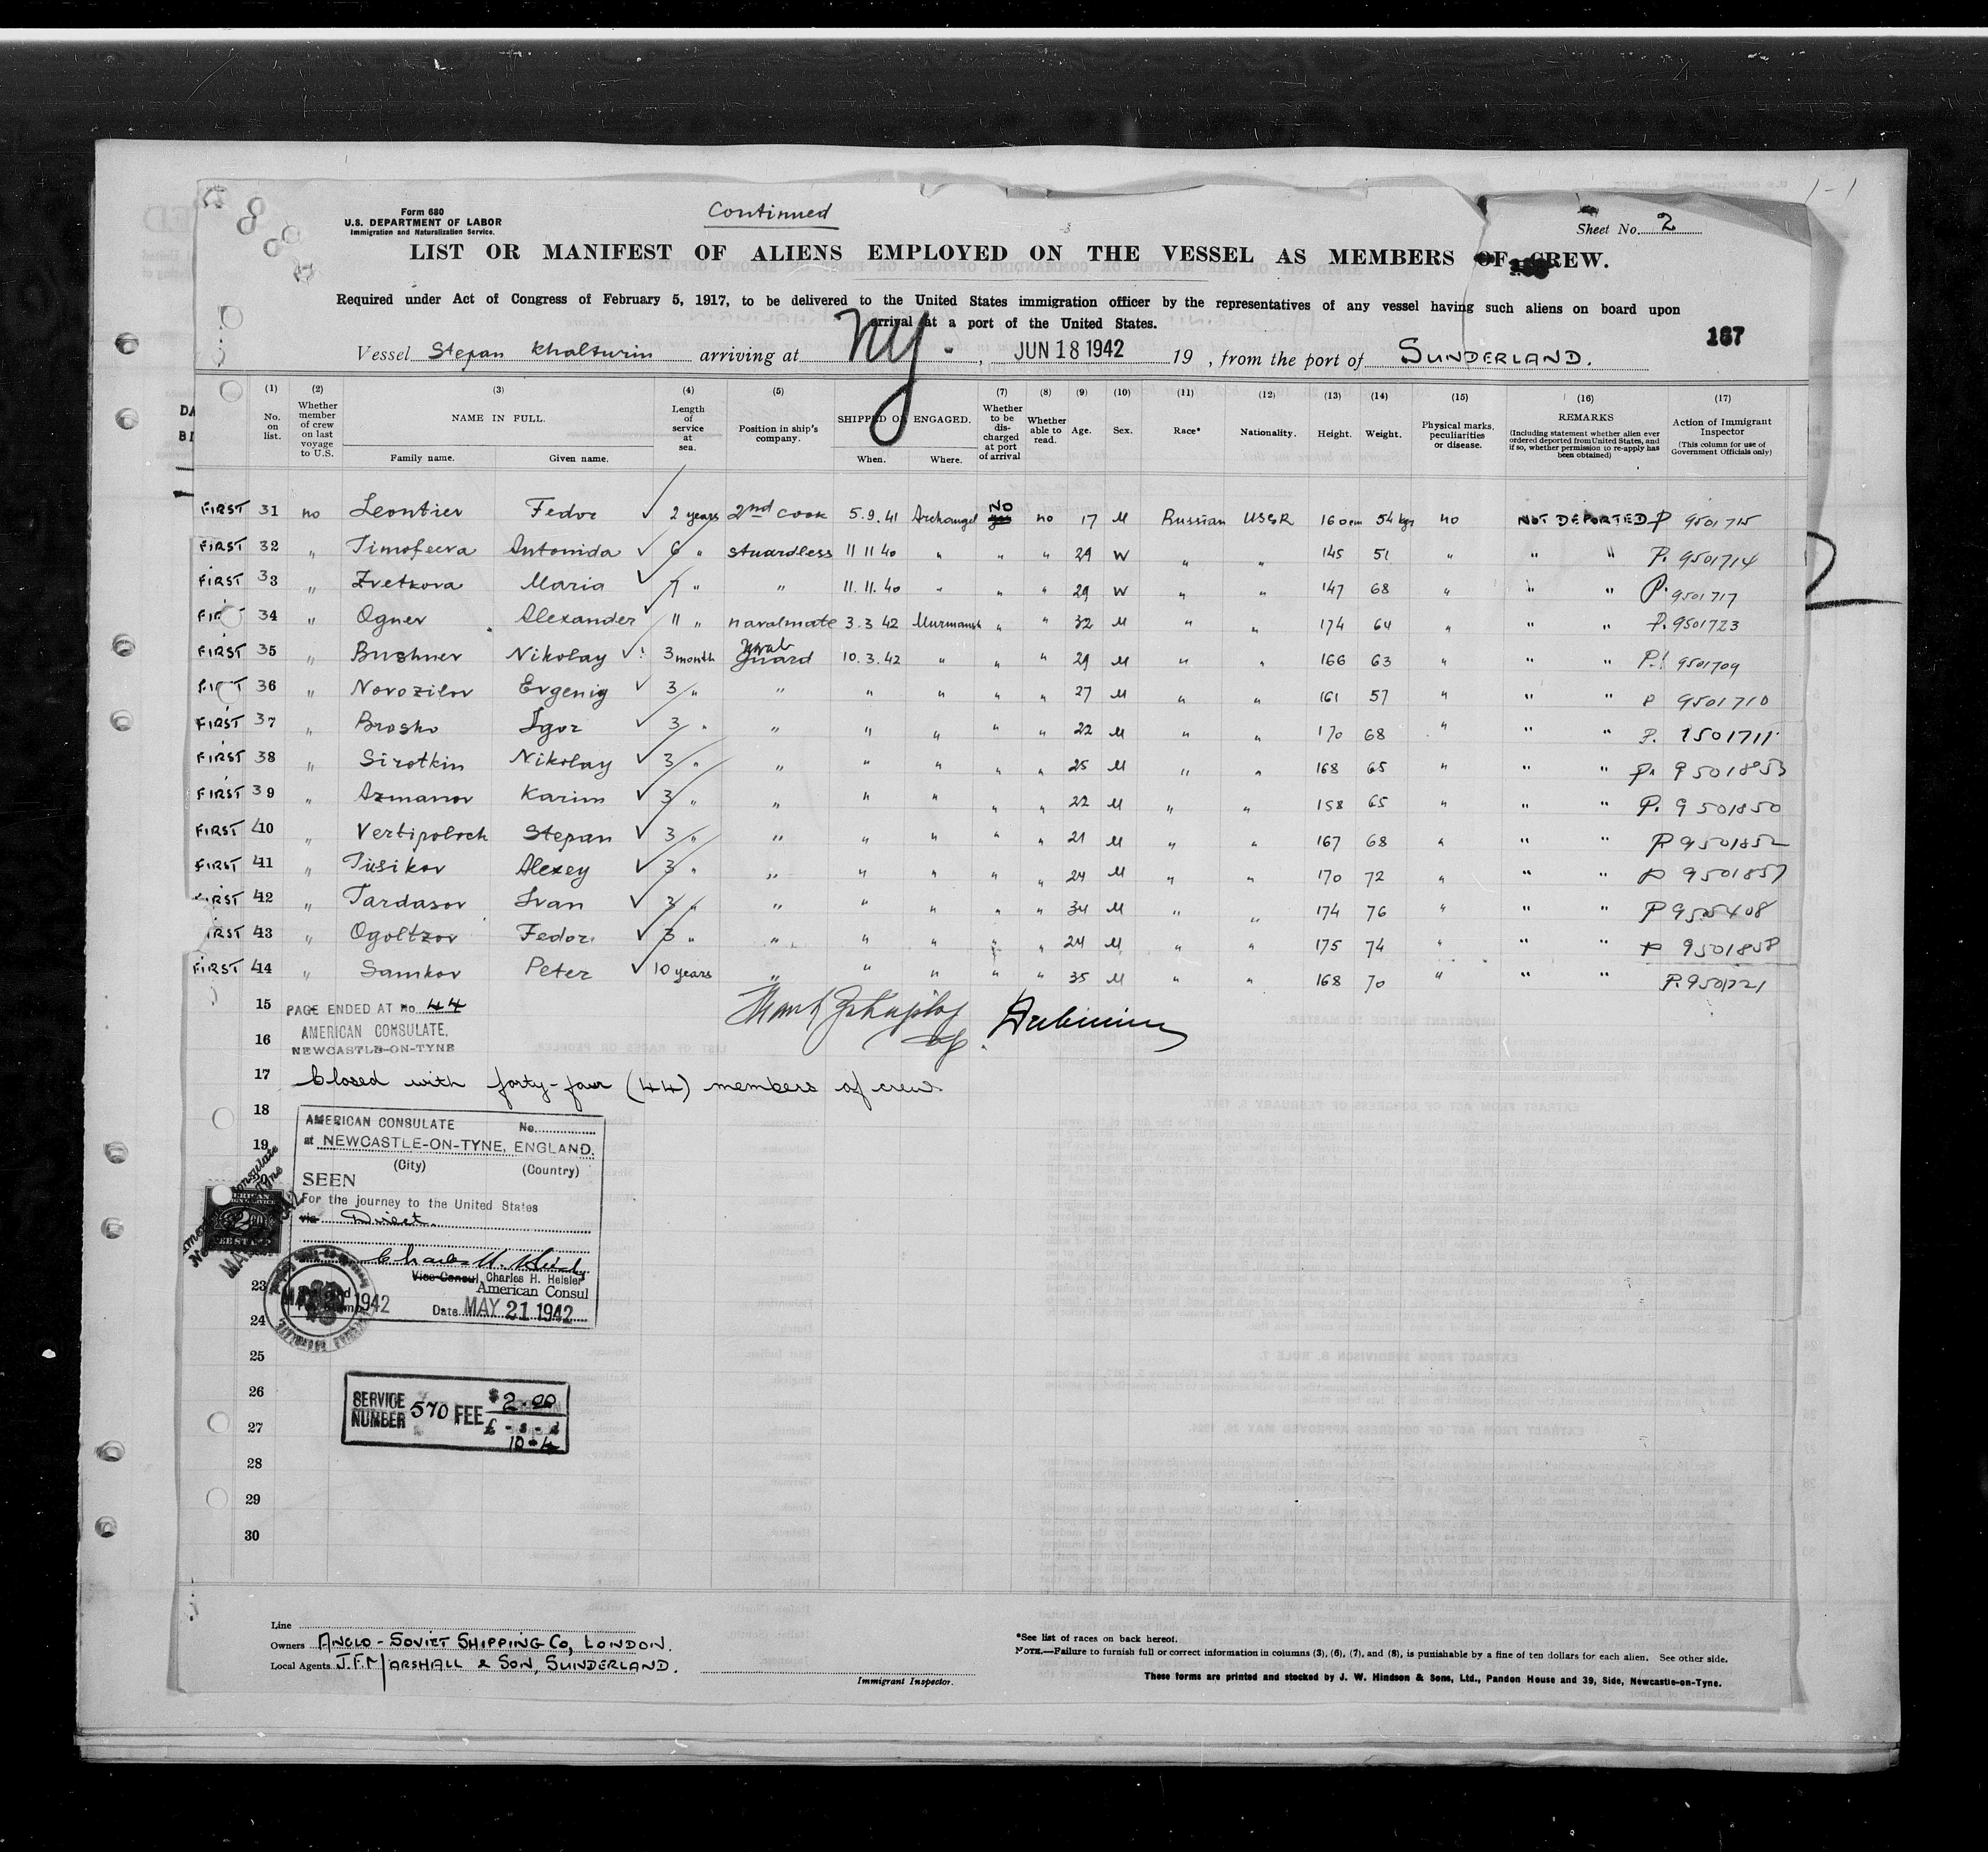 Continued
Form 680
U.S. DEPARTMENT OF LABOR
Immigration and Naturalization Service.
Sheet No. 2
LIST OR MANIFEST OF ALIENS EMPLOYED ON THE VESSEL AS MEMBERS OF CREW.
Required under Act of Congress of February 5, 1917, to be delivered to the United States immigration officer by the representatives of any vessel having such aliens on board upon
arrival at a port of the United States.
167
Vessel Stepan Khalturin arriving at NY. , JUN 18 1942 19 , from the port of SUNDERLAND.
(1) (2) (3) (4) (5) (6) (7) (8) (9) (10) (11) (12) (13) (14) (15) (16) (17)
No. on list. Whether member of crew on last voyage to U.S. NAME IN FULL. Family name. Given name. Length of service at sea. Position in ship's company. SHIPPED OR ENGAGED. When. Where. Whether to be discharged at port of arrival Whether able to read. Age. Sex. Race* Nationality. Height. Weight. Physical marks, peculiarities or disease. REMARKS (Including statement whether alien ever ordered deported from United States, and if so, whether permission to re-apply has been obtained) Action of Immigrant Inspector (This column for use of Government Officials only)
FIRST 31 no Leontiev Fedor ✓ 2 years 2nd cook 5.9.41 Archangel NO yes no 17 M Russian USSR 160cm 54 kgs no NOT DEPORTED P 9501715
FIRST 32 " Timofeeva Antonida ✓ 6 " stuardless 11 11 40 " " " 29 W " " 145 51 " " " P. 9501714
FIRST 33 " Zvetkova Maria ✓ 7 " " 11.11.40 " " " 29 W " " 147 68 " " " P. 9501717
34 " Ognev Alexander ✓ 11 " navalmate 3.3 42 Murmansk " " 32 M " " 174 64 " " " P. 9501723
FIRST 35 " Bushner Nikolay ✓ 3 month guard 10.3.42 " " " 29 M " " 166 63 " " " P. 9501709
36 " Novozilov Evgeniy ✓ 3 " " " " " " 27 M " " 161 57 " " " P 9501710
FIRST 37 " Brosko Igor ✓ 3 " " " " " " 22 M " " 170 68 " " " P. 9501711
FIRST 38 " Sirotkin Nikolay ✓ 3 " " " " " " 25 M " " 168 65 " " " P. 9501853
FIRST 39 " Azmanov Karim ✓ 3 " " " " " " 22 M " " 158 65 " " " P. 9501850
FIRST 40 " Vertipoloch Stepan ✓ 3 " " " " " " 21 M " " 167 68 " " " P 9501852
FIRST 41 " Tusikov Alexey ✓ 3 " " " " " " 24 M " " 170 72 " " " P 9501857
FIRST 42 " Tardasov Ivan ✓ 3 " " " " " " 34 M " " 174 76 " " " P 9505408
FIRST 43 " Ogoltzov Fedor ✓ 3 " " " " " " 24 M " " 175 74 " " " P 9501858
FIRST 44 " Samkov Peter ✓ 10 years " " " " " 35 M " " 168 70 " " " P. 9501721
15 PAGE ENDED AT No. 44
AMERICAN CONSULATE,
16 NEWCASTLE-ON-TYNE
17 Closed with forty-four (44) members of crew
18
AMERICAN CONSULATE No.
19 at NEWCASTLE-ON-TYNE, ENGLAND.
(City) (Country)
SEEN
For the journey to the United States
via Direct.
Vice Consul Charles H. Heisler
American Consul
23
Date MAY 21 1942
24
25
26
SERVICE NUMBER 570 FEE $ 2.00
£ - s - d
10-4
27
28
29
30
Line
Owners ANGLO-SOVIET SHIPPING Co, LONDON.
Local Agents J.F. MARSHALL & SON, SUNDERLAND.
Immigrant Inspector.
*See list of races on back hereof.
NOTE.—Failure to furnish full or correct information in columns (3), (6), (7), and (8), is punishable by a fine of ten dollars for each alien. See other side.
These forms are printed and stocked by J. W. Hindson & Sons, Ltd., Pandon House and 39, Side, Newcastle-on-Tyne.